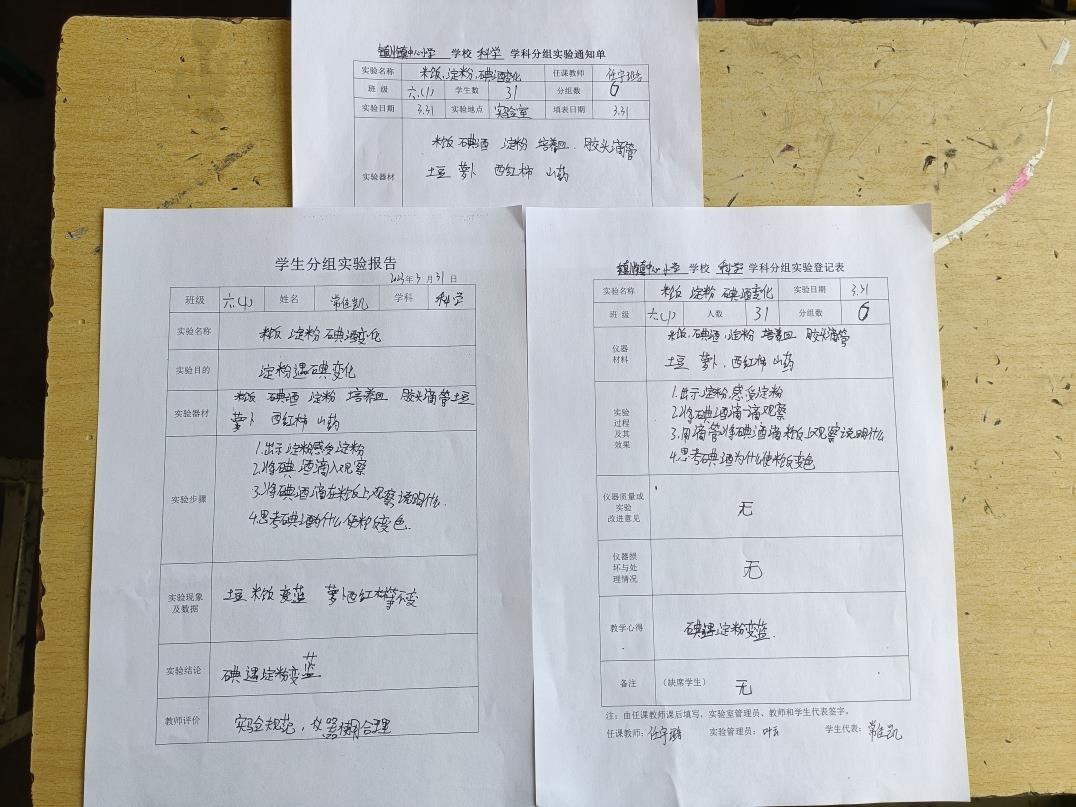 镇中心小学 学校 科学 学科分组实验通知单
实验名称 米饭,淀粉,碘酒变化 任课教师
班 级 六(1) 学生数 31 分组数 6
实验日期 3.31 实验地点 实验室 填表日期 3.31
实验器材 米饭 碘酒 淀粉 培养皿 胶头滴管
土豆 萝卜 西红柿 山药
学生分组实验报告
2023年3月31日
班级 六(1) 姓名 常佳凯 学科 科学
实验名称 米饭 淀粉 碘酒变化
实验目的 淀粉遇碘变化
实验器材 米饭 碘酒 淀粉 培养皿 胶头滴管 土豆
萝卜 西红柿 山药
实验步骤
1.出示淀粉感受淀粉
2.将碘酒滴入观察
3.将碘酒滴在米饭上观察说明什么.
4.思考碘酒为什么使米饭变色.
实验现象
及数据
土豆 米饭 变蓝 萝卜西红柿等不变
实验结论 碘遇淀粉变蓝
教师评价 实验规范,仪器使用合理
镇中心小学 学校 科学 学科分组实验登记表
实验名称 米饭 淀粉 碘酒变化 实验日期 3.31
班 级 六(1) 人数 31 分组数 6
仪器
材料
米饭,碘酒,淀粉 培养皿 胶头滴管
土豆 萝卜,西红柿 山药
实验
过程
及其
效果
1.出示淀粉,感受淀粉
2.将碘酒滴一滴观察
3.用滴管将碘酒滴米饭上观察说明什么
4.思考碘酒为什么使米饭变色
仪器质量或
实验
改进意见
无
仪器损
坏与处
理情况
无
教学心得 碘遇淀粉变蓝.
备注 (缺席学生) 无
注:由任课教师课后填写,实验室管理员、教师和学生代表签字。
任课教师: 实验管理员:叶云 学生代表:常佳凯